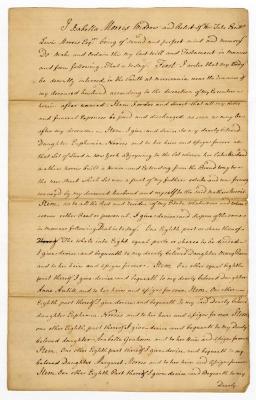 I Isabella Morris Widow and Relict of the Late Honble
Lewis Morris Esqr. being of sound and perfect mind and memory
Do make and ordain this my last Will and Testament in manner
and form following, That is to say. First I order that my Body
be decently interred in the Vault at Morrisania near the remains of
my deceased husband according to the direction of my Executors
herein after named. Item I order and direct that all my debts
and funeral Expences be paid and discharged as soon as may be
after my decease. Item I give and devise to my dearly beloved
Daughter Euphemia Norris and to her heirs and assigns forever all
that Lot of Land in New York adjoining to the Lot whereon
mother Norris built a House and Extending from the Broad way to
the new Street
by my deceased husband and myself to the said
Item, as to all the rest and residue of my Estate whatsoever and
soever either Real or personal, I give devise and dispose of the same
in manner following That is to Say. One Eighth part or share thereof
The whole into Eight equal parts or shares to be divided
I give devise and bequeath to my dearly beloved Daughter
and to her heirs and assigns forever. Item. One other equal Eighth
part thereof I give devise and bequeath to my dearly beloved Daughter
Anne Antill and to her heirs and assigns forever. Item. One other
Eighth part thereof I give devise and bequeath to my said dearly beloved
daughter Euphemia Norris and to her heirs and assigns forever Item
one other Eighth part thereof I give devise and bequeath to my dearly
beloved daughter Arabella Graham and to her heirs and assigns forever
Item. One other Eighth part thereof I give devise, and bequeath to my
beloved Daughter Margaret Morris and to her heirs and assigns forever
Item. One other Eighth Part thereof I give devise and Bequeath to my
Dearly